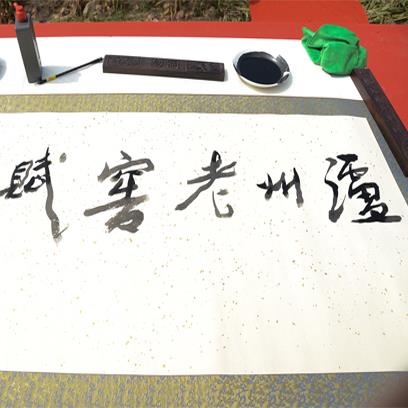 瀘州老窖賦